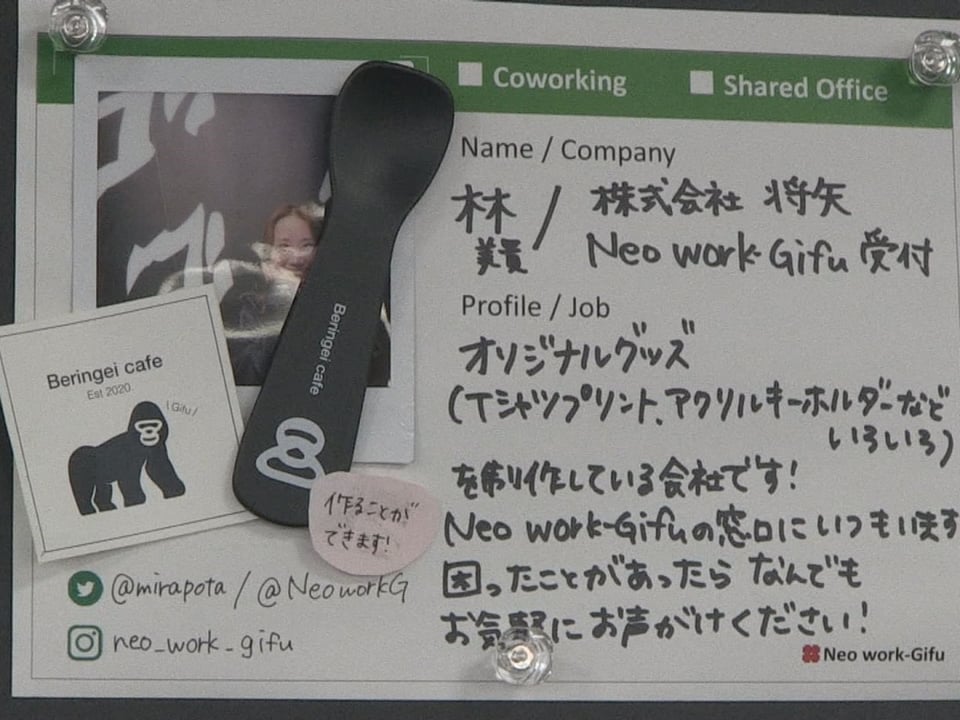 ■ Coworking ■ Shared Office
Name / Company
林 / 株式会社 将矢
美貴 Neo work-Gifu 受付
Profile / Job
オリジナルグッズ
(Tシャツプリント、アクリルキーホルダーなど
いろいろ)
を制作している会社です!
Neo work-Gifuの窓口にいつもいます
困ったことがあったら なんでも
お気軽に お声がけください!
Neo work-Gifu
Beringei cafe
Beringei cafe
Est 2020.
Gifu
作ることが
できます!
@mirapota / @NeoworkG
neo_work_gifu